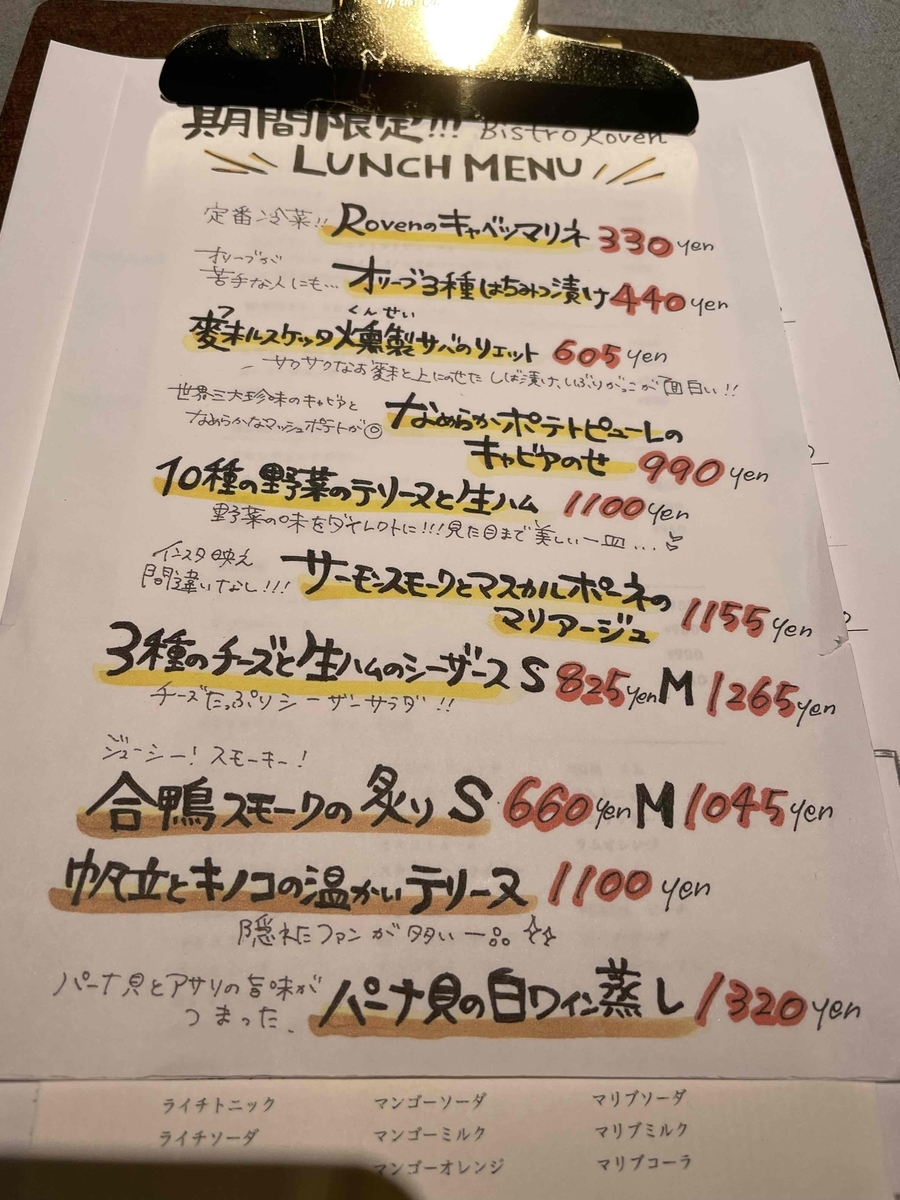 期間限定!!! Bistro Roven
LUNCH MENU
定番冷菜!! Rovenのキャベツマリネ 330 yen
オリーブが
苦手な人にも… オリーブ3種はちみつ漬け 440 yen
フ くんせい
麸ルスケッタ 燻製サバのリエット 605 yen
サクサクなお麸と上にのせたしば漬け、いぶりがっこが面白い!!
世界三大珍味のキャビアと
なめらかなマッシュポテトが◎ なめらかポテトピューレの
キャビアのせ 990 yen
10種の野菜のテリーヌと生ハム 1100 yen
野菜の味をダイレクトに!!!見た目まで美しい一皿…
インスタ映え
間違いなし!!! サーモンスモークとマスカルポーネの
マリアージュ 1155 yen
3種のチーズと生ハムのシーザース S 825 yen M 1265 yen
チーズたっぷりシーザーサラダ!!
ジューシー! スモーキー!
合鴨スモークの炙り S 660 yen M 1045 yen
帆立とキノコの温かいテリーヌ 1100 yen
隠れたファンが多い一品 ☆☆
パーナ貝とアサリの旨味が
つまった。 パーナ貝の白ワイン蒸し 1320 yen
ライチトニック マンゴーソーダ マリブソーダ
ライチソーダ マンゴーミルク マリブミルク
マンゴーオレンジ マリブコーラ